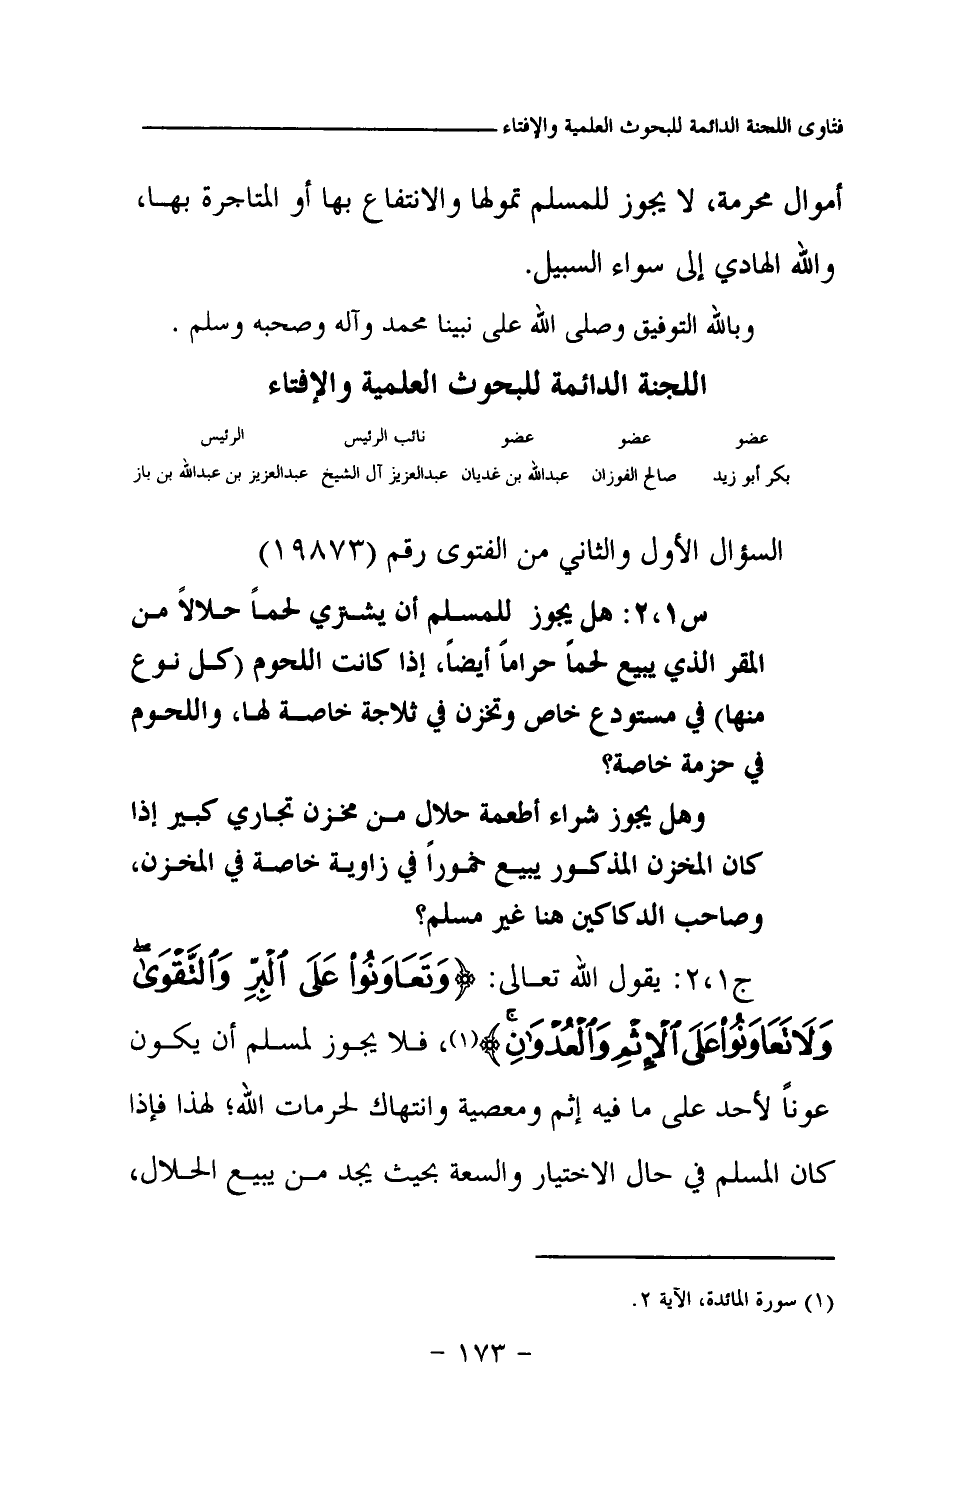 فتاوى اللجنة الدائمة للبحوث العلمية والإفتاء
أموال محرمة، لا يجوز للمسلم تمولها والانتفاع بها أو المتاجرة بهـا،
والله الهادي إلى سواء السبيل.
وبالله التوفيق وصلى الله على نبينا محمد وآله وصحبه وسلم .
اللجنة الدائمة للبحوث العلمية والإفتاء
عضو عضو عضو نائب الرئيس الرئيس
بكر أبو زيد صالح الفوزان عبدالله بن غديان عبدالعزيز آل الشيخ عبدالعزيز بن عبدالله بن باز
السؤال الأول والثاني من الفتوى رقم (١٩٨٧٣)
س٢،١: هل يجوز للمسـلم أن يشـتري لحمـاً حـلالاً مـن
المقر الذي يبيع لحماً حراماً أيضاً، إذا كانت اللحوم (كـل نـوع
منها) في مستودع خاص وتخزن في ثلاجة خاصـة لهـا، واللحـوم
في حزمة خاصة؟
وهل يجوز شراء أطعمة حلال مـن مخـزن تجاري كبـير إذا
كان المخزن المذكـور يبيـع خمـوراً في زاويـة خاصـة في المخـزن،
وصاحب الدكاكين هنا غير مسلم؟
ج٢،١: يقول الله تعـالى: ﴿وَتَعَاوَنُوا۟ عَلَى ٱلْبِرِّ وَٱلتَّقْوَىٰ ۖ
وَلَا تَعَاوَنُوا۟ عَلَى ٱلْإِثْمِ وَٱلْعُدْوَٰنِ ۚ﴾(١)، فـلا يجـوز لمسـلم أن يكـون
عوناً لأحد على ما فيه إثم ومعصية وانتهاك لحرمات الله؛ لهذا فإذا
كان المسلم في حال الاختيار والسعة بحيث يجد مـن يبيـع الحـلال،
(١) سورة المائدة، الآية ٢.
- ١٧٣ -